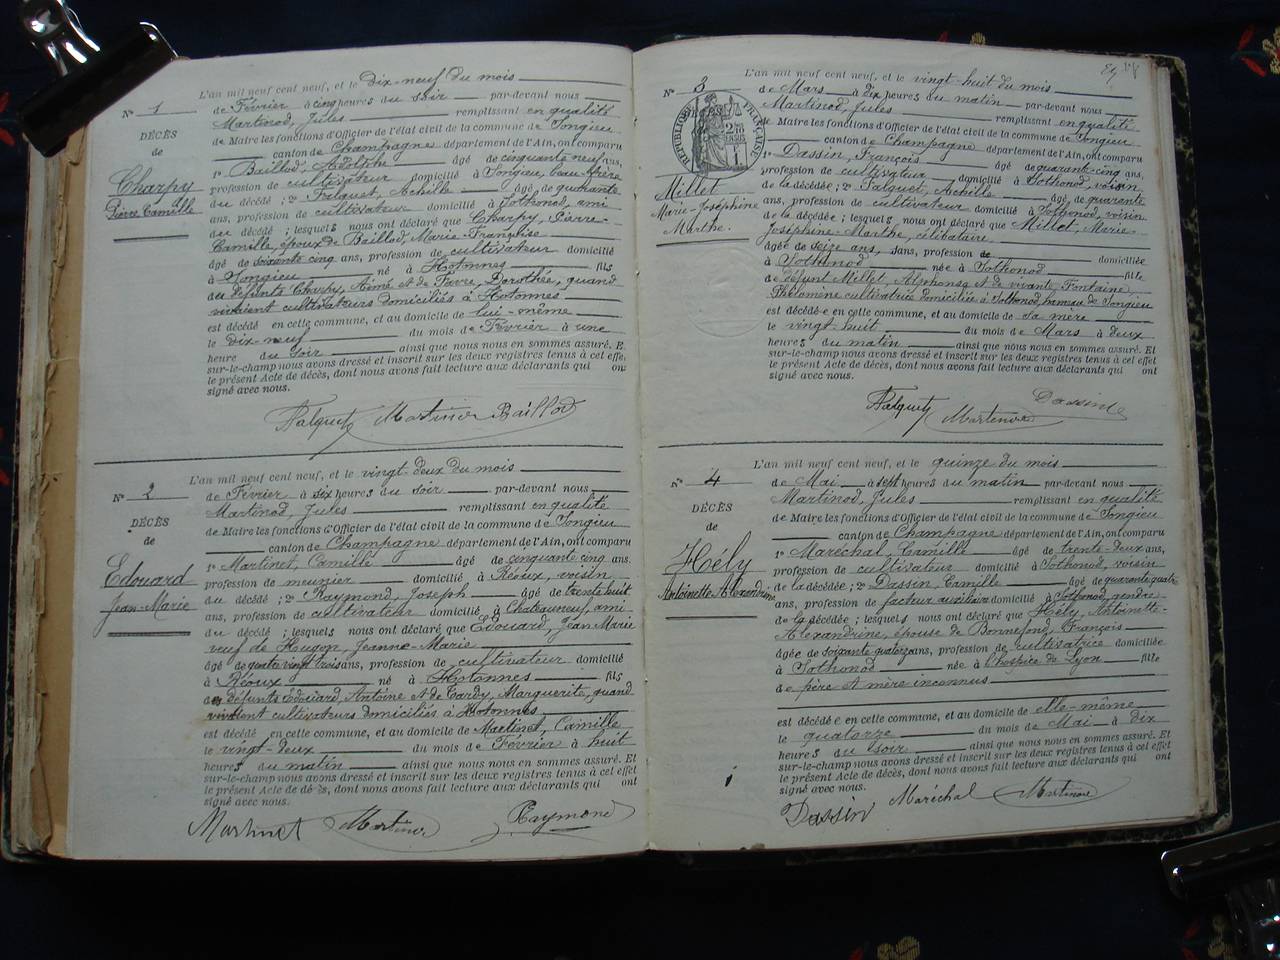 L'an mil neuf cent neuf, et le Dix-neuf du mois
N° 1
de Février à cinq heures du soir par-devant nous
Martinod, Jules remplissant en qualité
DÉCÈS
de Maire les fonctions d'Officier de l'état civil de la commune de Songieu
de
canton de Champagne département de l'Ain, ont comparu
1° Baillod, Adolphe âgé de cinquante neuf ans,
Charpy
profession de cultivateur domicilié à Songieu, beau-frère
Pierre Camille
du décédé ; 2° Falquet, Achille âgé de quarante
ans, profession de cultivateur domicilié à Sothonod, ami
du décédé ; lesquels nous ont déclaré que Charpy, Pierre-
Camille, époux de Baillod, Marie-Françoise
âgé de soixante cinq ans, profession de cultivateur domicilié
à Songieu né à Hotonnes fils
des défunts Charpy, Aimé et de Favre, Dorothée, quand
vivaient cultivateurs domiciliés à Hotonnes
est décédé en cette commune, et au domicile de lui-même
le dix-neuf du mois de Février à une
heure du soir ainsi que nous nous en sommes assuré. Et
sur-le-champ nous avons dressé et inscrit sur les deux registres tenus à cet effet
le présent Acte de décès, dont nous avons fait lecture aux déclarants qui ont
signé avec nous.
Falquet Martinod Baillod
L'an mil neuf cent neuf, et le vingt-deux du mois
N° 2
de Février à six heures du soir par-devant nous
Martinod, Jules remplissant en qualité
DÉCÈS
de Maire les fonctions d'Officier de l'état civil de la commune de Songieu
de
canton de Champagne département de l'Ain, ont comparu
1° Martinet, Camille âgé de cinquante cinq ans.
Edouard
profession de meunier domicilié à Réoux, voisin
Jean-Marie
du décédé ; 2° Raymond, Joseph âgé de trente huit
ans, profession de cultivateur domicilié à Chateauneuf, ami
du décédé ; lesquels nous ont déclaré que Edouard, Jean Marie
veuf de Hugon, Jeanne-Marie
âgé de quatre vingt trois ans, profession de cultivateur domicilié
à Réoux né à Hotonnes fils
des défunts Edouard, Antoine et de Tardy, Marguerite, quand
vivaient cultivateurs domiciliés à Hotonnes
est décédé en cette commune, et au domicile de Martinet, Camille
le vingt-deux du mois de Février à huit
heures du matin ainsi que nous nous en sommes assuré. Et
sur-le-champ nous avons dressé et inscrit sur les deux registres tenus à cet effet
le présent Acte de décès, dont nous avons fait lecture aux déclarants qui ont
signé avec nous.
Martinet Martinod Raymond
L'an mil neuf cent neuf, et le vingt-huit du mois
N° 3
de Mars à dix heures du matin par-devant nous
Martinod, Jules remplissant en qualité
RÉPUBLIQUE FRANÇAISE
de Maire les fonctions d'Officier de l'état civil de la commune de Songieu
canton de Champagne département de l'Ain, ont comparu
1° Dassin, François âgé de quarante-cinq ans,
profession de cultivateur domicilié à Sothonod, voisin
Millet
de la décédée ; 2° Falquet, Achille âgé de quarante
Marie-Joséphine
ans, profession de cultivateur domicilié à Sothonod, voisin
Marthe.
de la décédée ; lesquels nous ont déclaré que Millet, Marie-
Joséphine-Marthe, célibataire
âgée de seize ans, sans, profession de domiciliée
à Sothonod née à Sothonod fille
de défunt Millet, Alphonse et de vivante Fontaine,
Philomène cultivatrice domiciliée à Sothonod, hameau de Songieu
est décédée en cette commune, et au domicile de sa mère
le vingt-huit du mois de Mars à deux
heures du matin ainsi que nous nous en sommes assuré. Et
sur-le-champ nous avons dressé et inscrit sur les deux registres tenus à cet effet
le présent Acte de décès, dont nous avons fait lecture aux déclarants qui ont
signé avec nous.
Falquet Martinod Dassin
L'an mil neuf cent neuf, et le quinze du mois
N° 4
de Mai à sept heures du matin par-devant nous
Martinod, Jules remplissant en qualité
DÉCÈS
de Maire les fonctions d'Officier de l'état civil de la commune de Songieu
de
canton de Champagne département de l'Ain, ont comparu
1° Maréchal, Camille âgé de trente-deux ans,
Hély
profession de cultivateur domicilié à Sothonod, voisin
Antoinette Alexandrine
de la décédée ; 2° Dassin, Camille âgé de quarante quatre
ans, profession de facteur auxiliaire domicilié à Sothonod, gendre
de la décédée ; lesquels nous ont déclaré que Hély, Antoinette-
Alexandrine, épouse de Bonnefond, François
âgée de soixante quatorze ans, profession de cultivatrice domiciliée
à Sothonod née à l'hospice de Lyon fille
de père et mère inconnus
est décédée en cette commune, et au domicile de elle-même
le quatorze du mois de Mai à dix
heures du soir ainsi que nous nous en sommes assuré. Et
sur-le-champ nous avons dressé et inscrit sur les deux registres tenus à cet effet
le présent Acte de décès, dont nous avons fait lecture aux déclarants qui ont
signé avec nous.
Dassin Maréchal Martinod